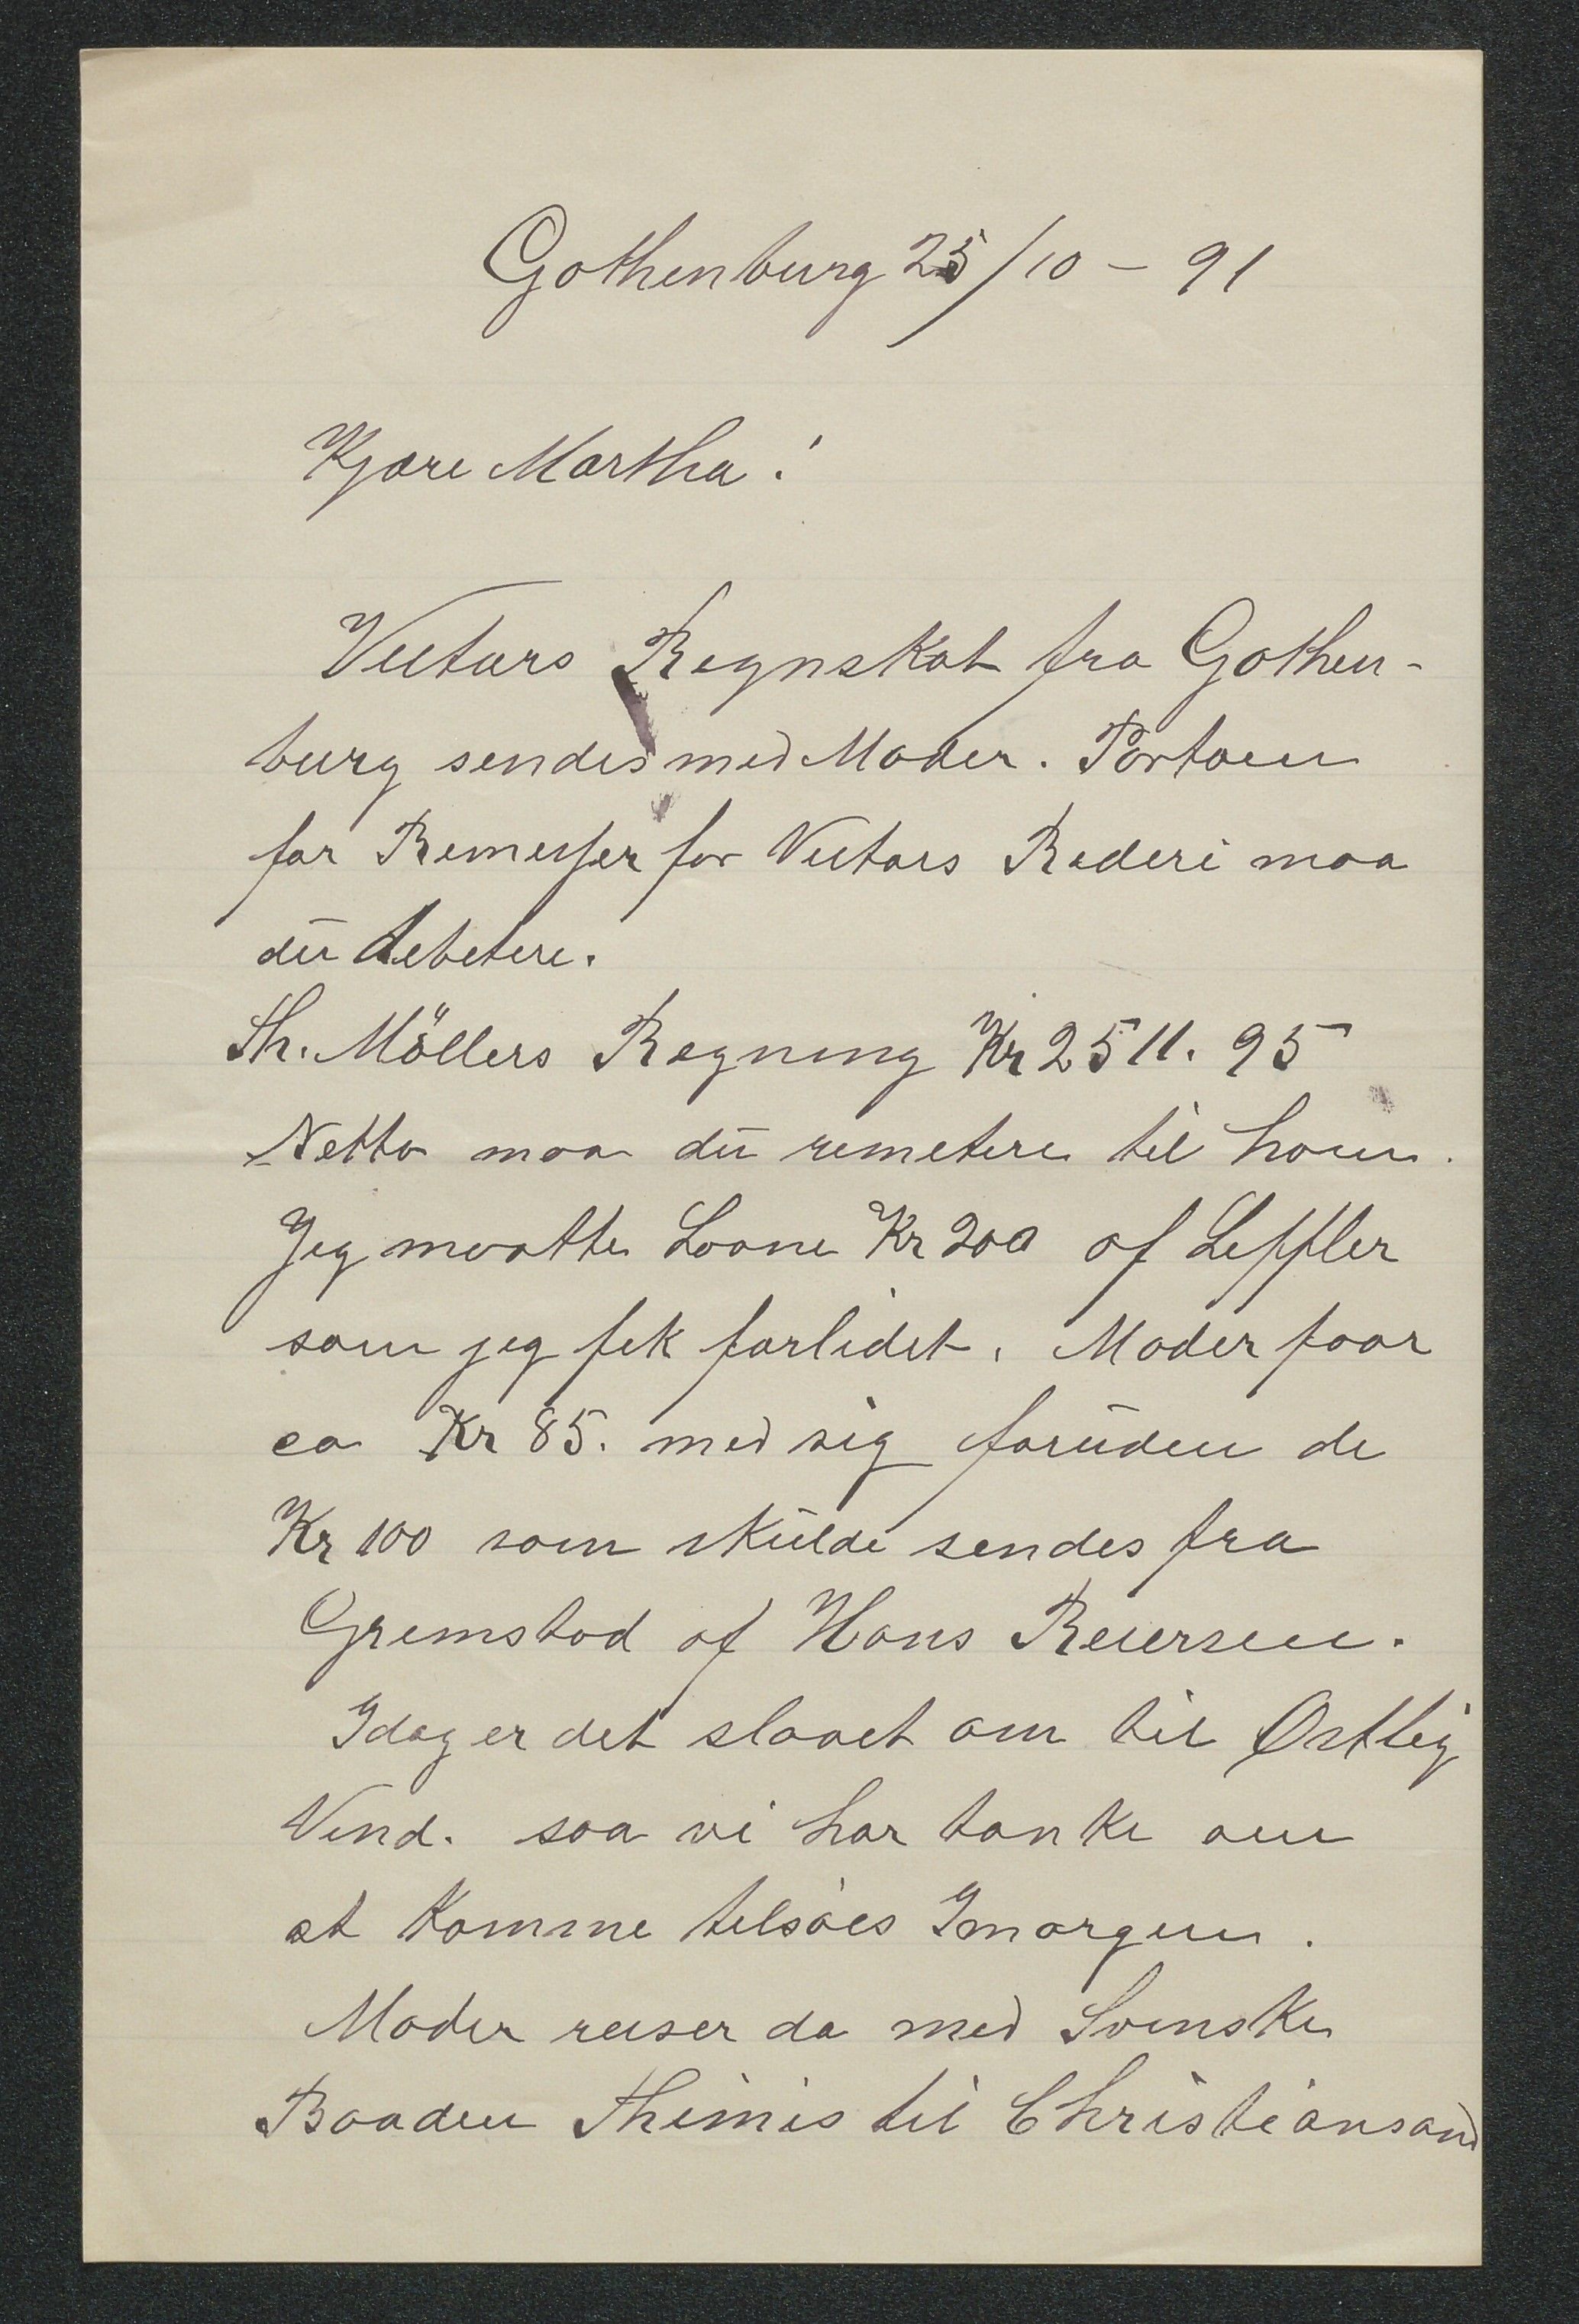 Gothenburg 25/10 - 91
Kjære Martha!
Victors Regnskab fra Gothen-
burg sendes med Moder. Portoen
for Remesser for Victors Rederi maa
du debetere.
Th. Möllers Regning Kr 2511. 95
Netto maa du remetere til ham.
Jeg maatte Laane Kr 200 af Leffler
som jeg fik forlidet. Moder faar
ca Kr 85. med sig foruden de
Kr 100 som skulde sendes fra
Grimstad af Hans Reiersen.
Idag er det slaaet om til Østlig
Vind. saa vi har tanke om
at Komme tilsøes Imorgen.
Moder reiser da med Svenske
Baaden Themis til Christiansand